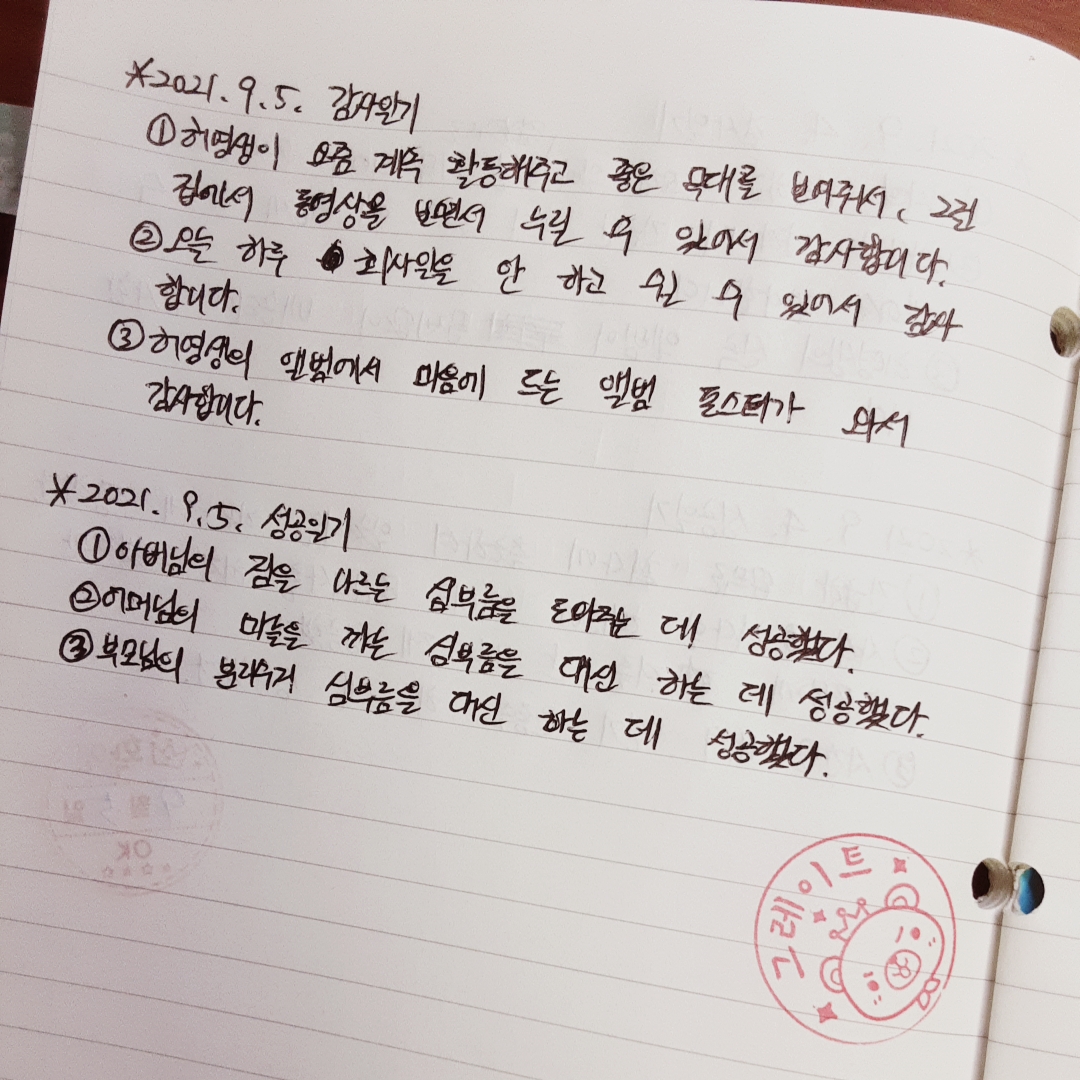 *2021. 9. 5. 감사일기
①허영생이 요즘 계속 활동해주고 좋은 무대를 보여줘서, 그걸
집에서 동영상을 보면서 누릴 수 있어서 감사합니다.
②오늘 하루 회사일을 안 하고 쉴 수 있어서 감사
합니다.
③허영생의 앨범에서 마음에 드는 앨범 포스터가 와서
감사합니다.
*2021. 9. 5. 성공일기
①아버님의 짐을 나르는 심부름을 도와주는 데 성공했다.
②어머님의 마늘을 까는 심부름을 대신 하는 데 성공했다.
③부모님의 분리수거 심부름을 대신 하는 데 성공했다.
그레이트